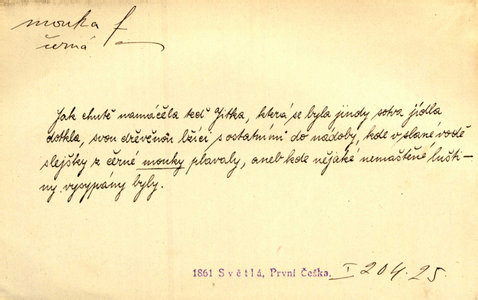 mouka f
černá
Jak chutě namáčela teď Jitka, která se byla jindy sotva jídla
dotkla, svou dřevěnou lžíci s ostatními do nádoby, kde v slané vodě
slejšky z černé mouky plavaly, aneb kde nějaké nemaštěné lušti-
ny vysypány byly.
1861 Světlá, První Češka, I 204.25.